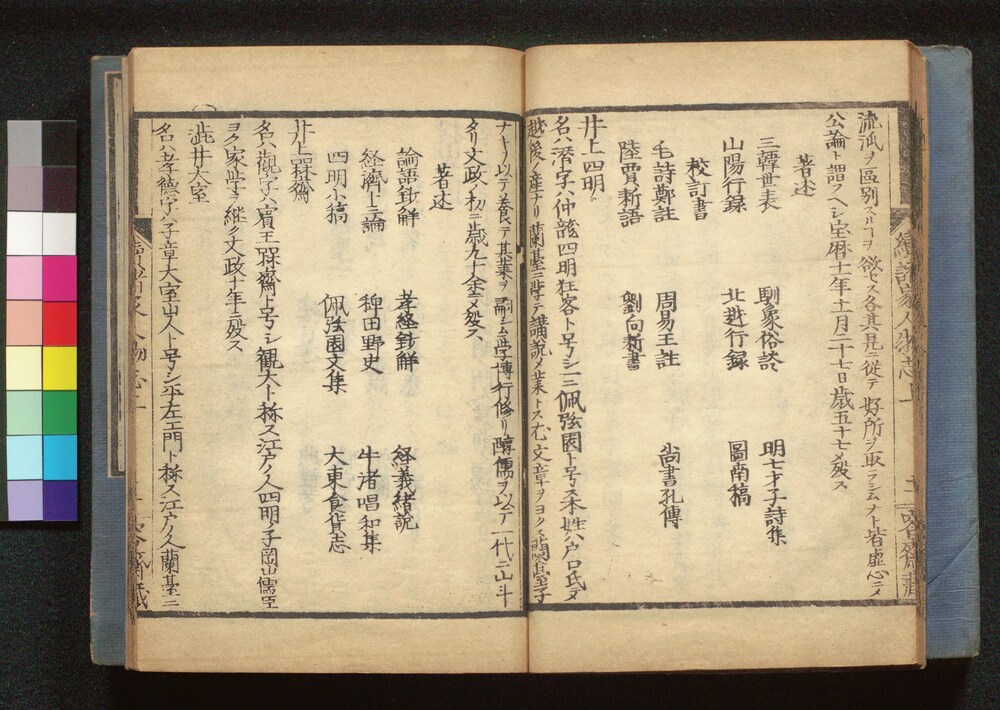 流派ヲ区別スルヿヲ欲セス各其見ニ従テ好所ヲ取ラシムナト皆虚心ニメ
公論ト謂フヘシ宝暦十一年十一月二十七日歳五十七ニメ殁ス
著述
三韓世表 馴象俗談 明七才子詩集
山陽行録 北越行録 圖南稿
校訂書
毛詩鄭註 周易王註 尚書孔傳
陸賈新語 劉向新書
井上四明
名ハ潜字ハ仲龍四明狂客ト号シ一ニ佩弦園ト号ス本姓ハ戸口氏ヲ
越後ノ産ナリ蘭臺ニ学テ講説メ業トス尤文章ヲヨクス蘭臺子
ナキヲ以テメ養テ其業ヲ嗣シム学博行修リ醇儒ヲ以テ一代ニ山斗
タリ文政ノ初ニ歳九十余ニメ殁ス
著述
論語鈔解 孝経鈔解 経義緒説
経濟十二論 稗田野史 牛渚唱和集
四明小稿 佩弦園文集 大東食貨志
井上
名ハ觀字ハ賓王
齋ト号シ観大ト称ス江戸ノ人四明ノ子岡山儒臣
ヨク家学ヲ継ク文政十年ニ殁ス
澁井大室
名ハ孝德字ハ子章大室山人ト号シ平左エ門ト称ス江戸ノ人蘭臺ニ